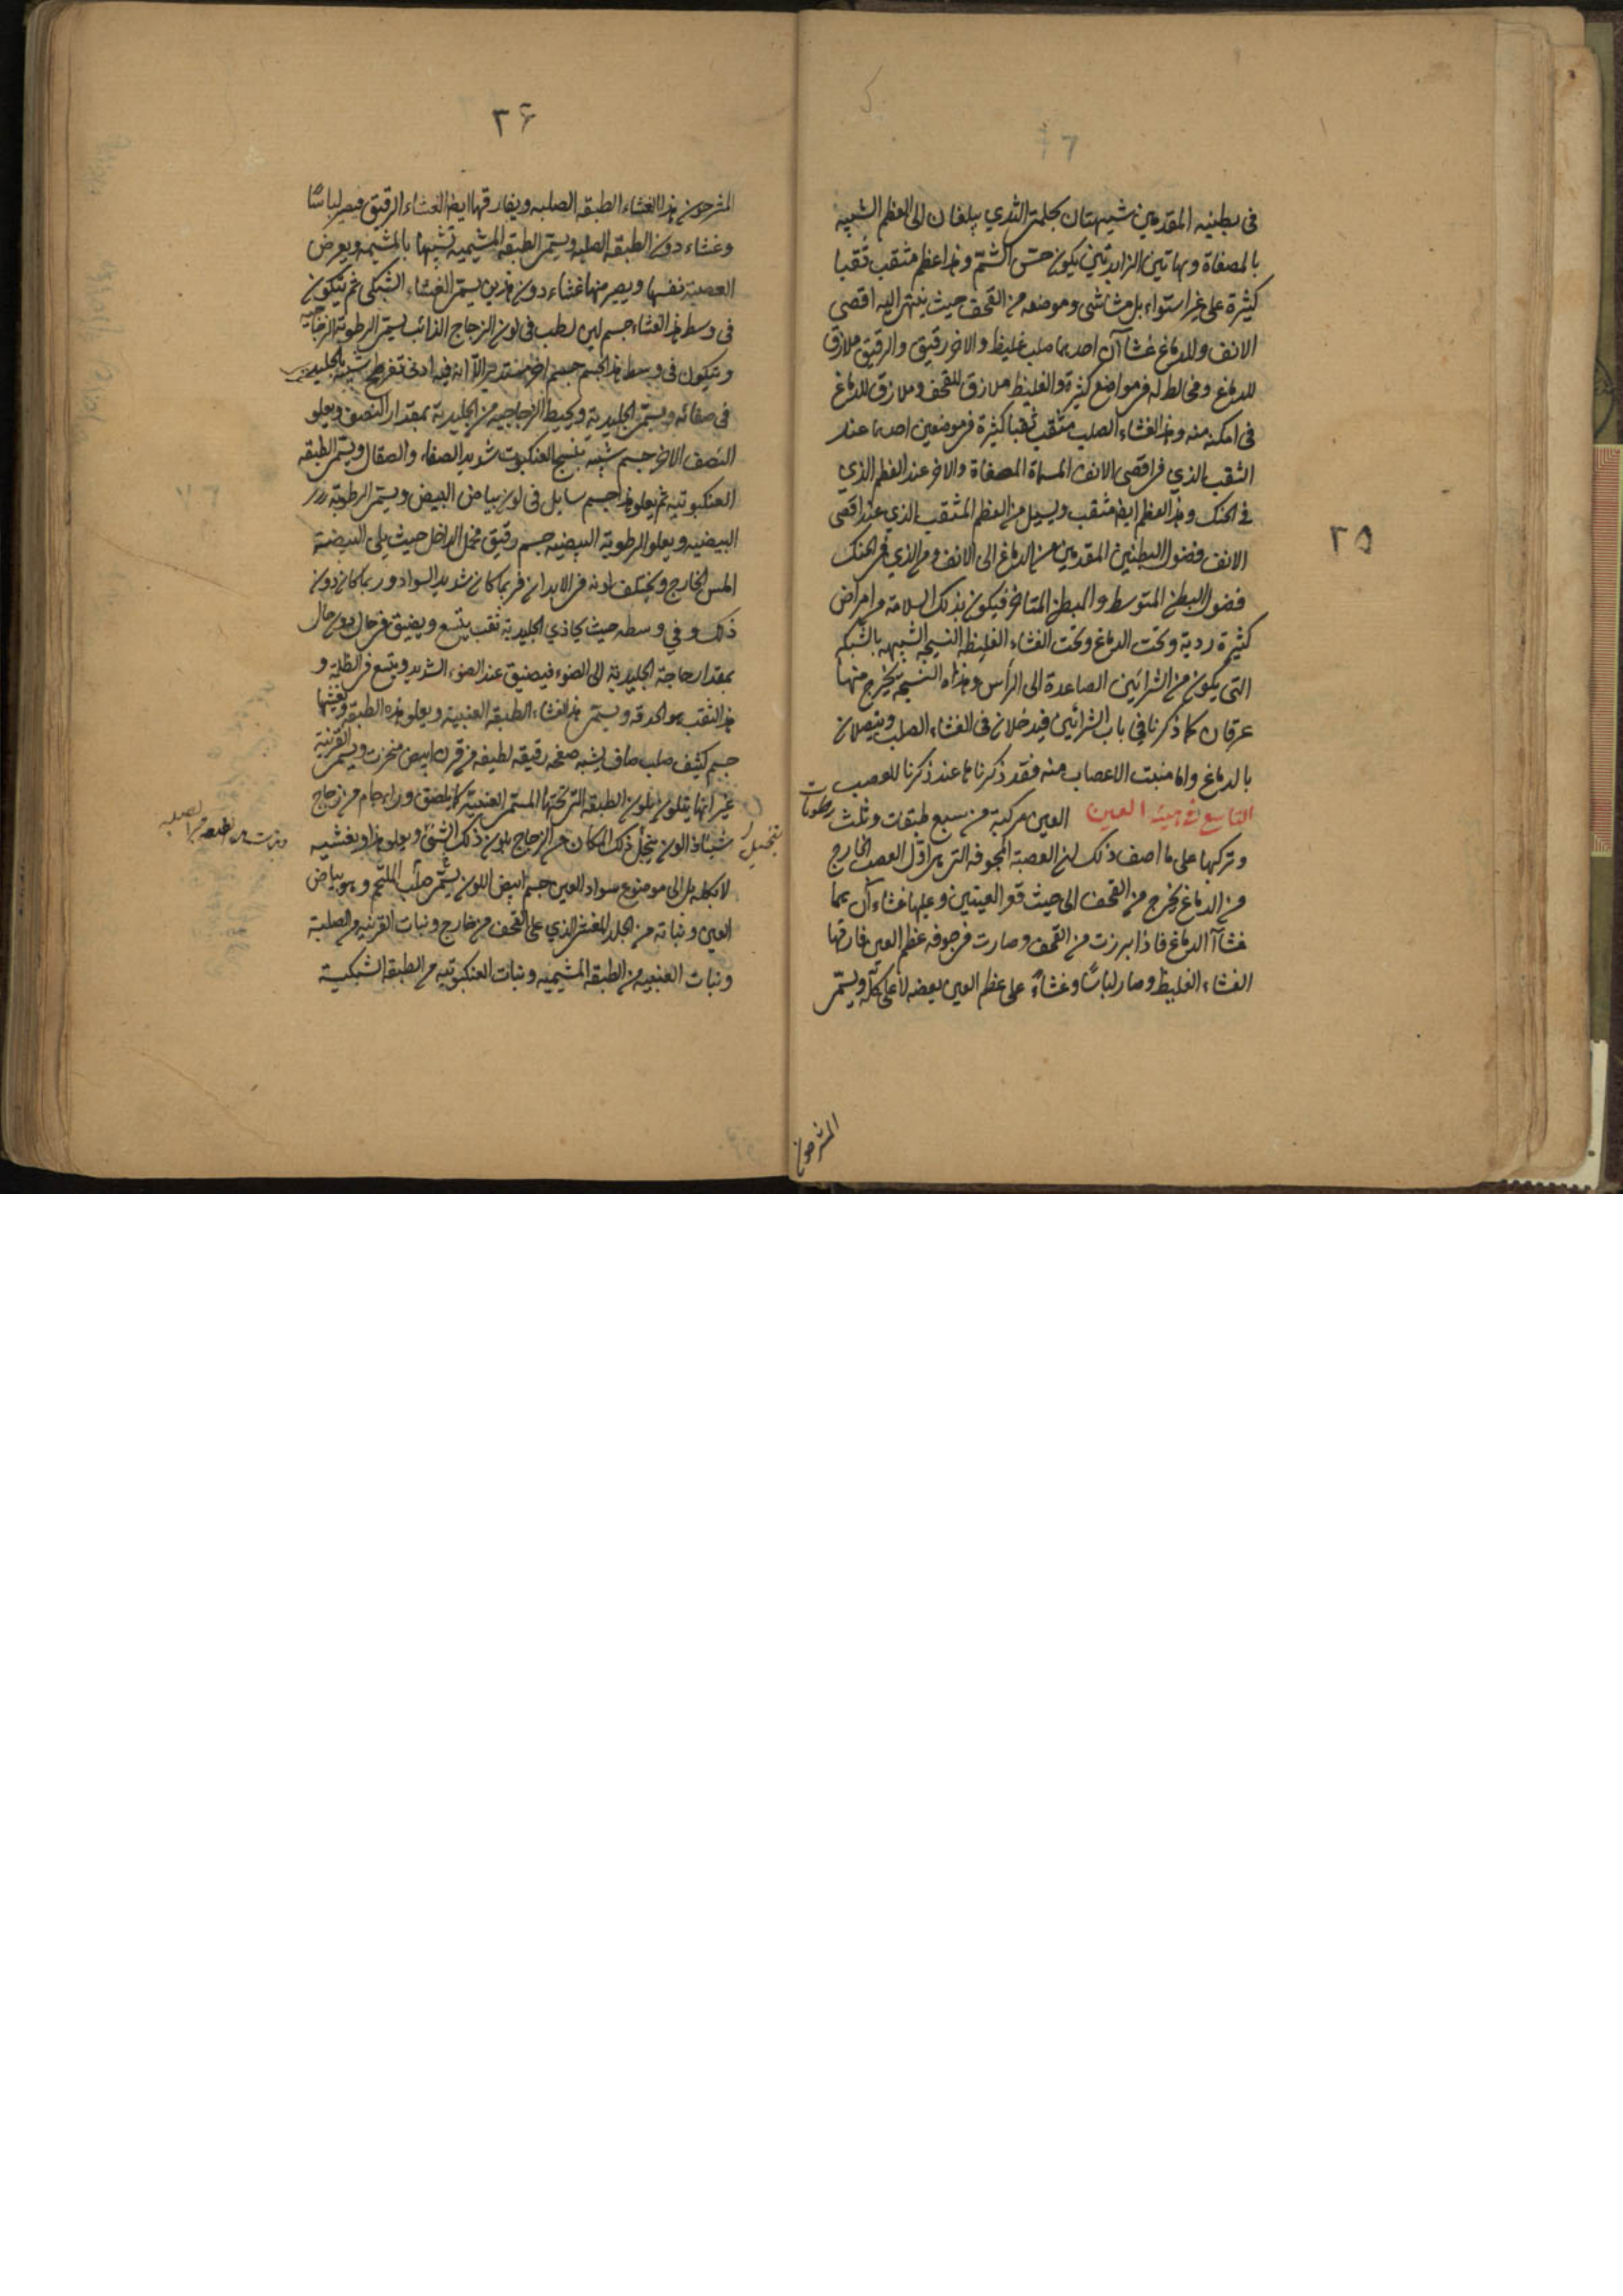 ٢٥
في بطنيه المقدمين شبيهتان بحلمتي الثدي يبلغان الى العظم الشبيه
بالمصفاة وبهاتين الزايدتين يكون حس الشم وهذا عظم مثقب ثقبا
كثيرة على غير استواء بل مشاشي وموضعه من القحف حيث ينتهي اليه اقصى
الانف وللدماغ غشاآن احدهما صلب غليظ والاخر رقيق والرقيق ملازق
للدماغ ومخالط له في مواضع كثيرة والغليظ ملازق للقحف وملازق للدماغ
في امكنة منه وهذا الغشاء الصلب مثقب ثقبا كثيرة في موضعين احدهما عند
الثقب الذي في اقصى الانف المسماة المصفاة والاخر عند العظم الذي
في الحنك وهذا العظم ايضا مثقب ويسيل من العظم المثقب الذي عند اقصى
الانف فضول البطنين المقدمين من الدماغ الى الانف ومن الذي في الحنك
فضول البطن المتوسط والبطن المتاخر فيكون بذلك السلامة من امراض
كثيرة ردية وتحت الدماغ وتحت الغشاء الغليظ النسيجه الشبيهه بالشبكه
التي يكون من الشرائين الصاعدة الى الرأس وهذه النسيجه يخرج منها
عرقان كما ذكرنا في باب الشرائين فيدخلان في الغشاء الصلب ويتصلان
بالدماغ واما منبت الاعصاب منه فقد ذكرناها عند ذكرنا للعصب
التاسع في هيئة العين العين مركبة من سبع طبقات وثلث رطوبات
وتركيبها على ما اصف ذلك ان العصبة المجوفه التي هي اول العصب الخارج
من الدماغ يخرج من القحف الى حيث قعر العينين وعليها غشاءآن هما
غشاآ الدماغ فاذا برزت من القحف وصارت في جوفه عظم العين فارقها
الغشاء الغليظ وصار لباسًا وغشاءً على عظم العين بعضه لا على كله ويسمى
المشرحون
٢۶
المشرحون هذا الغشاء الطبقه الصلبه ويفارقها ايضا الغشاء الرقيق فيصير لباسًا
وغشاء دون الطبقه الصلبه ويسمى الطبقه المشيميه تشبيها بالمشيمه ويعرض
العصبة نفسها ويصير منها غشاء دون هذين يسمى الغشاء الشبكي ثم يتكون
في وسط هذا الغشاء جسم لين رطب في لون الزجاج الذائب يسمى الرطوبة الزجاجيه
ويتكون في وسط هذا الجسم جسم اخر مستدير الا انه فيه ادنى تفرطح شبيه بالجليد
في صفائه ويسمى الجليدية ويحيط الزجاجيه من الجليدية بمقدار النصف ويعلو
النصف الاخر جسم شبيه بنسج العنكبوت شديد الصفاء والصقال ويسمى الطبقه
العنكبوتيه ثم يعلو هذا جسم سايل في لون بياض البيض ويسمى الرطوبة
البيضيه ويعلو الرطوبة البيضيه جسم رقيق مخمل الداخل حيث يلى البيضية
املس الخارج ويختلف لونه في الابدان فربما كان شديد السواد وربما كان دون
ذلك وفي وسطه حيث يحاذي الجليدية ثقب يتسع ويضيق في حال دون حال
بمقدار حاجة الجليدية الى الضوء فيضيق عند الضوء الشديد ويتسع في الظلمة و
هذا الثقب هو الحدقه ويسمى هذا الغشاء الطبقه العنبية ويعلو هذه الطبقه ويغشيها
جسم كثيف صلب صاف يشبه صفحه رقيقه لطيفه من قرن ابيض منخرت ويسمى القرنية
غير انها يتلون بلون الطبقه التي تحتها المسمى العنبية كما يلصق وراء جام من زجاج
شيئا ذا لون يتخيل ذلك المكان من الزجاج بلون ذلك الشئ ويعلو هذا ويغشيه
لا بكله بل الى موضوع سواد العين جسم ابيض اللون يسمى صلب الملتحم وهو بياض
العين ونباته من الجلد المغشى الذي على القحف من خارج ونبات القرنيه من الصلبة
ونبات العنبيه من الطبقه المشيميه ونبات العنكبوتيه من الطبقه الشبكية